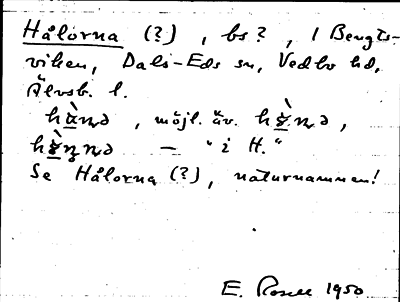 Hålorna (?), bs?, i Bengts-
viken, Dals-Eds sn, Vedbo hd,
Älvsb. l.
hàɳə, möjl. äv. hàɳə,
— "i H."
Se Hålorna (?), naturnamnen!
E. Rosell 1950